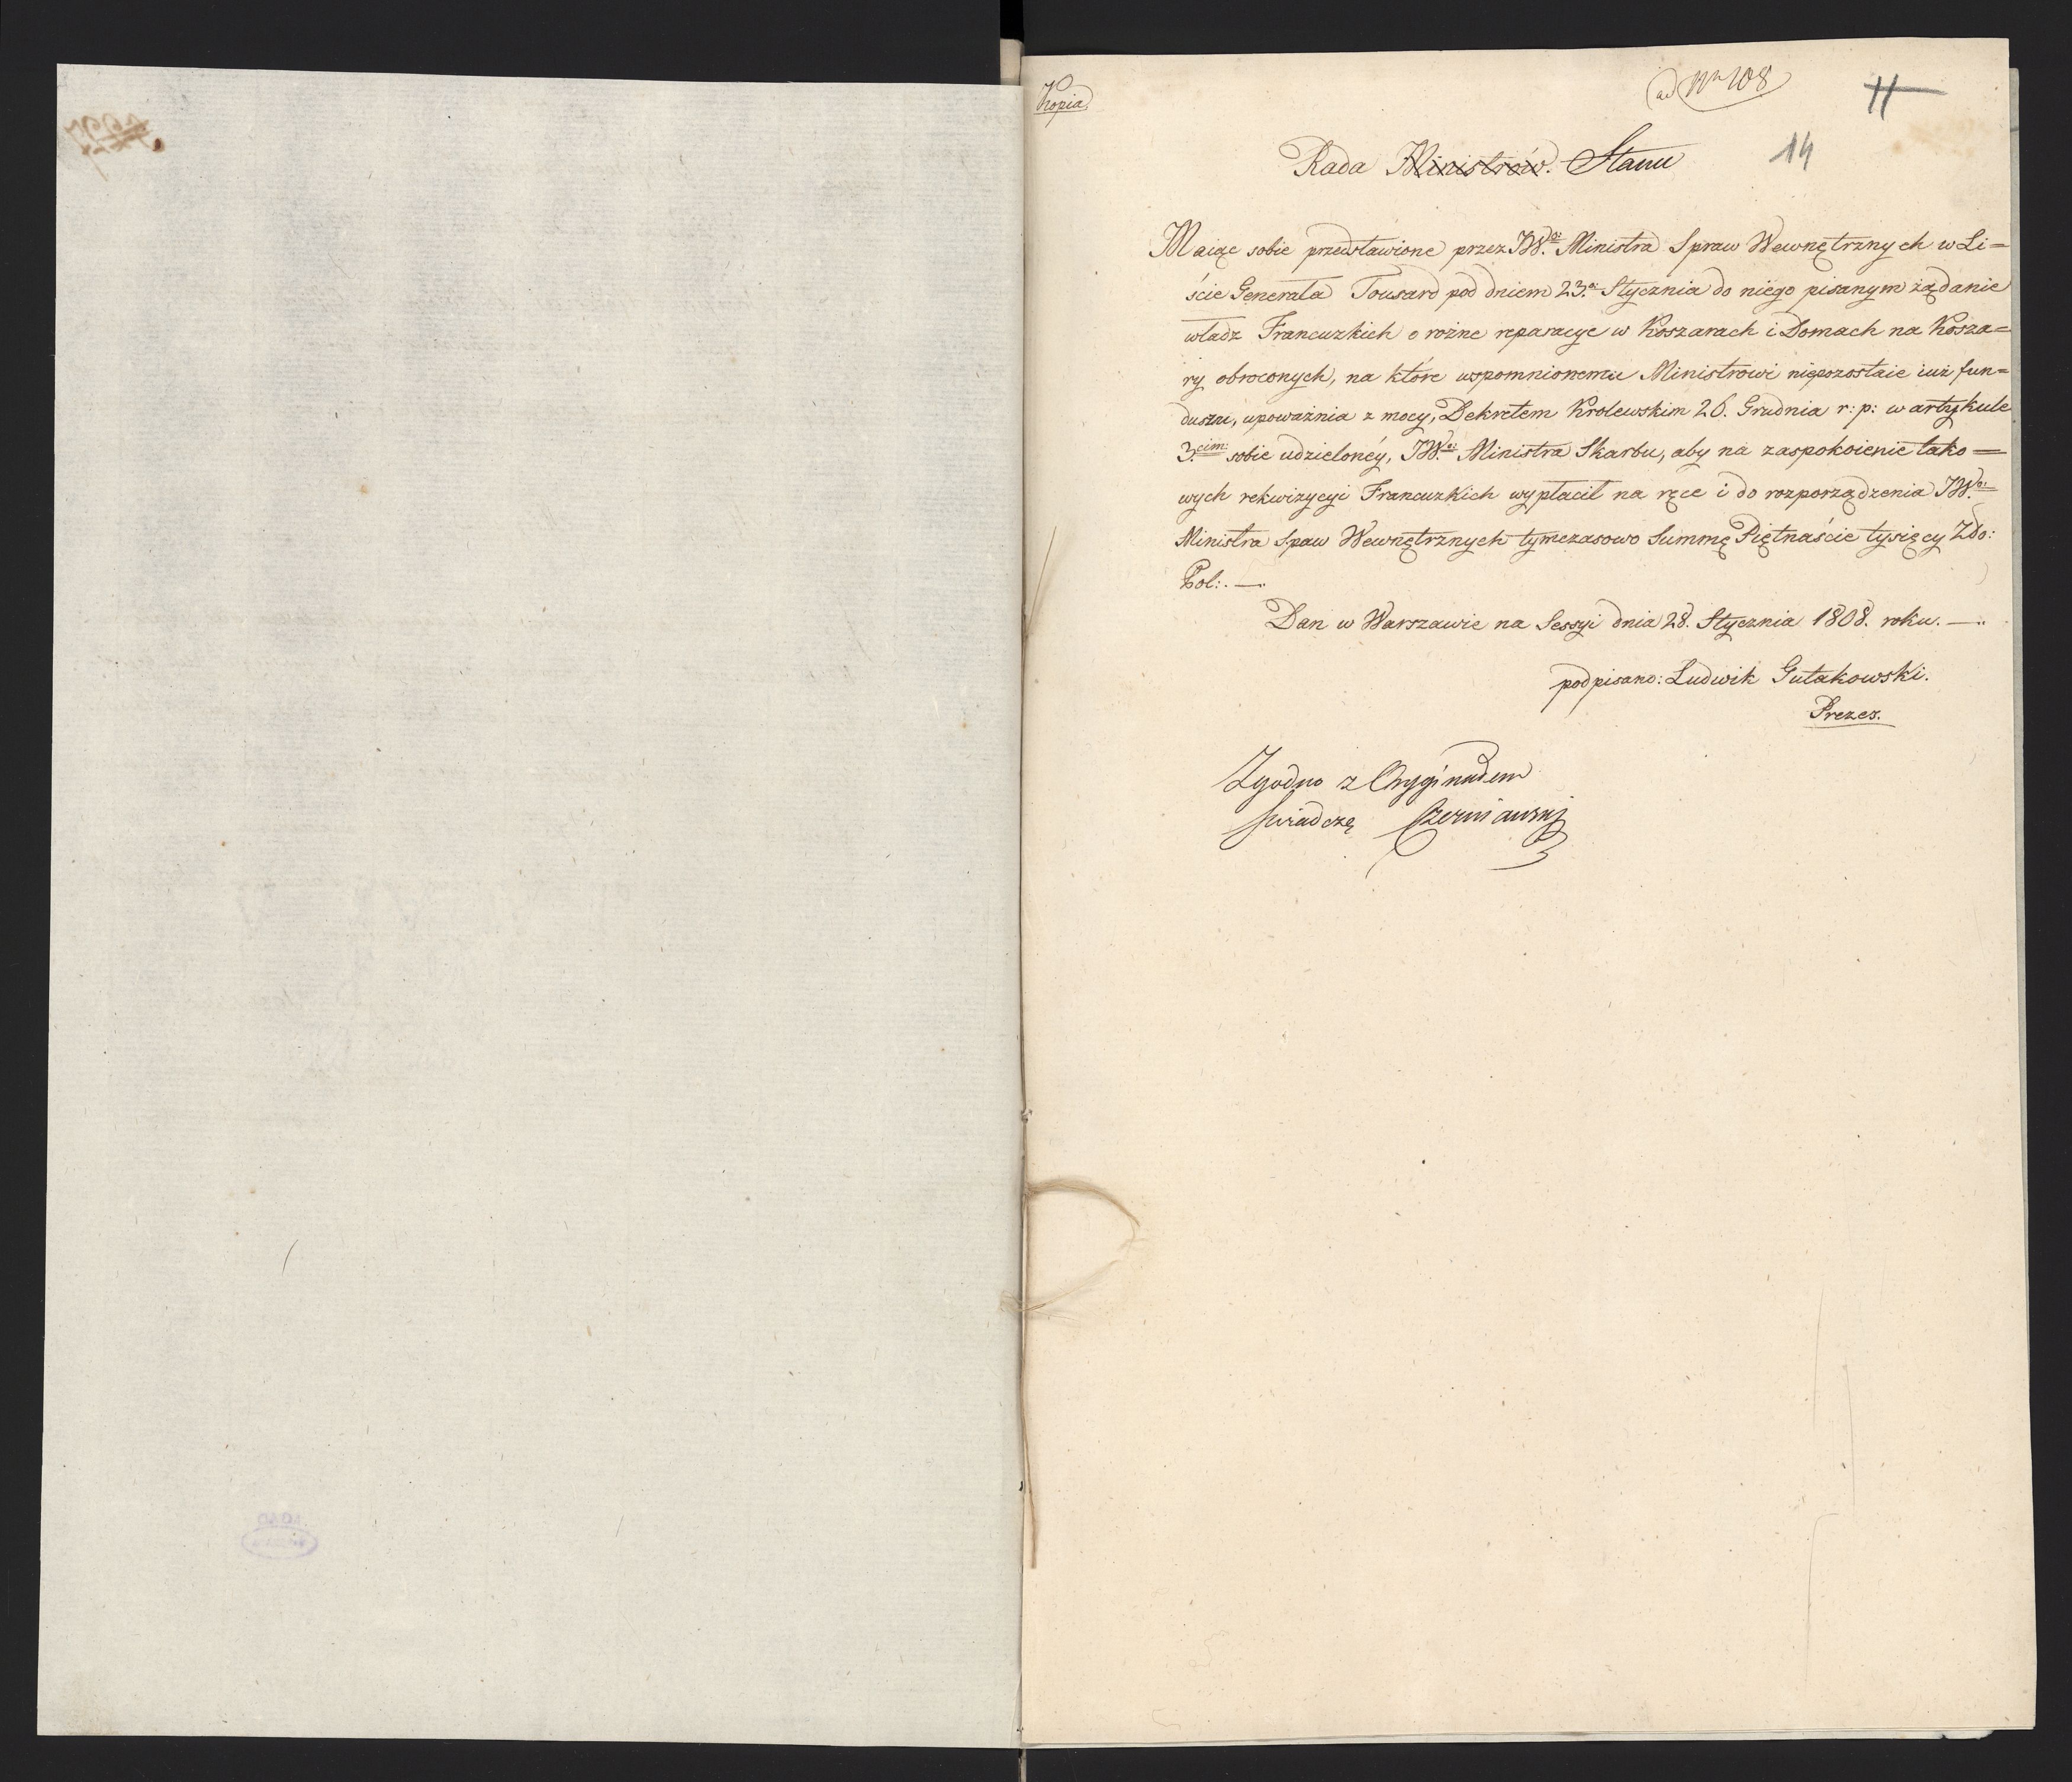 Kopia
ad Nro 108
11
14
Rada Ministrów. Stanu
Maiąc sobie przedstawione przez JW.º Ministra Spraw Wewnętrznych w Li=
ście Generała Tousard pod dniem 23.º Stycznia do niego pisanym żądanie
władz Francuzkich o rożne reparacye w Koszarach i Domach na Kosza=
ry obroconych, na które wspomnionemu Ministrowi niepozostaie iuż fun=
duszu, upoważnia z mocy, Dekretem Krolewskim 26. Grudnia r: p: w artykule
3.cim: sobie udzielonéy, JW.º Ministra Skarbu, aby na zaspokoienie tako=
wych rekwizycyi Francuzkich wypłacił na ręce i do rozporządzenia JW.º
Ministra Spaw Wewnętrznych tymczasowo Summę Piętnaście tysięcy Zło:
Pol:. —.
Dan w Warszawie na Sessyi dnia 28. Stycznia 1808. roku. —..
podpisano: Ludwik Gutakowski.
Prezes.
Zgodno z Oryginałem
świadczę